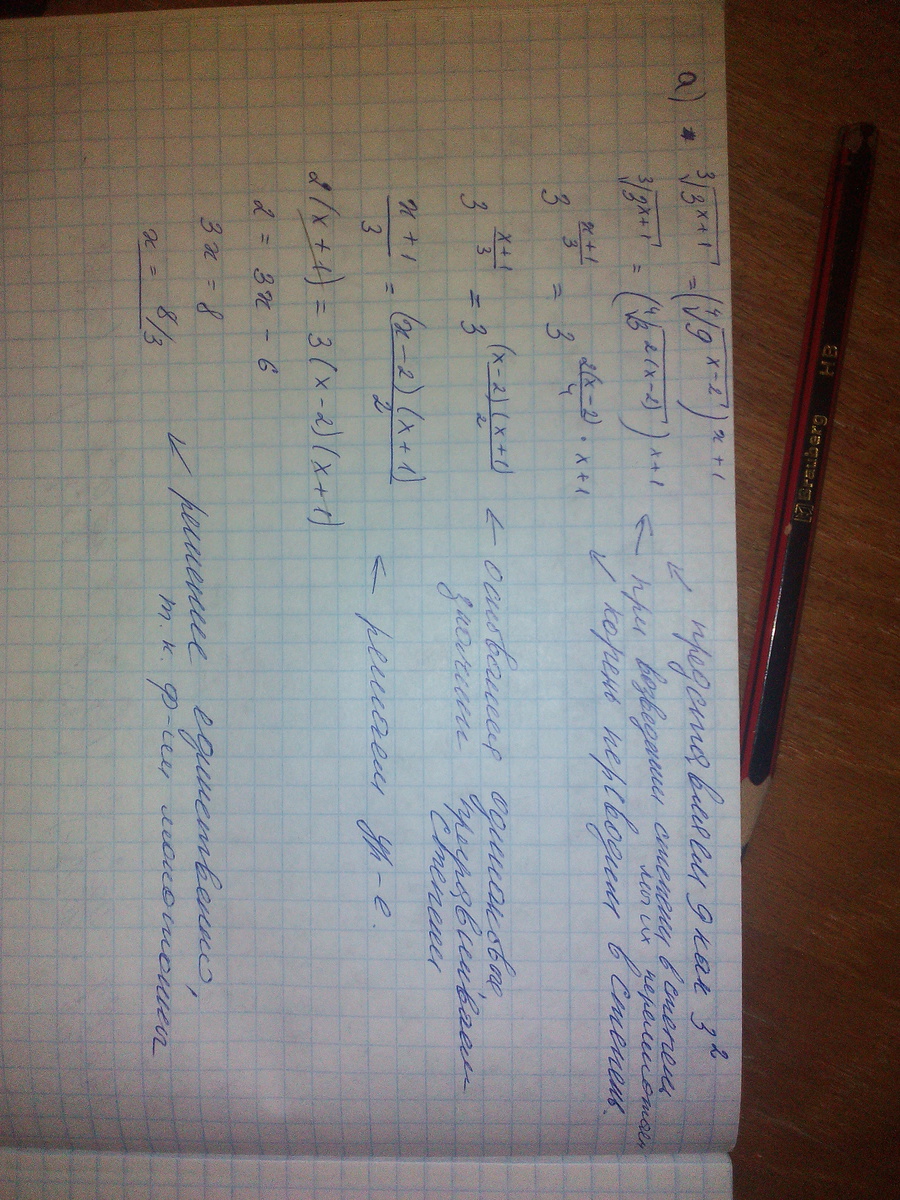 а) ∛(3^(x+1)) = (∜(9^(x-2)))^(x+1)
↙ представляем 9 как 3²
∛(3^(x+1)) = (∜(3^(2(x-2))))^(x+1)
← при возведении степени в степень
мы их перемножаем
3^((x+1)/3) = 3^(2(x-2)/4 · x+1)
↙ корень переводим в степень.
3^((x+1)/3) = 3^((x-2)(x+1)/2)
← основания одинаковые
значит приравниваем
степени
(x+1)/3 = (x-2)(x+1)/2
← решаем ур-е.
2(x+1) = 3(x-2)(x+1)
2 = 3x - 6
3x = 8
x = 8/3
↙ решение единственно,
т.к. ф-ии монотонны
Brauberg HB